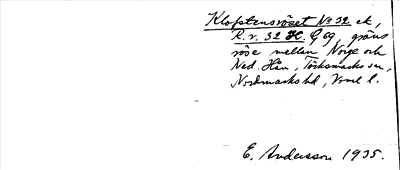 Kloftensröset No 32 ek,
R.r. 32 H. G 69, gräns
röse mellan Norge och
Ned. Hån, Töcksmarks sn,
Nordmarks hd, Vrml l.
E. Andersson 1935.